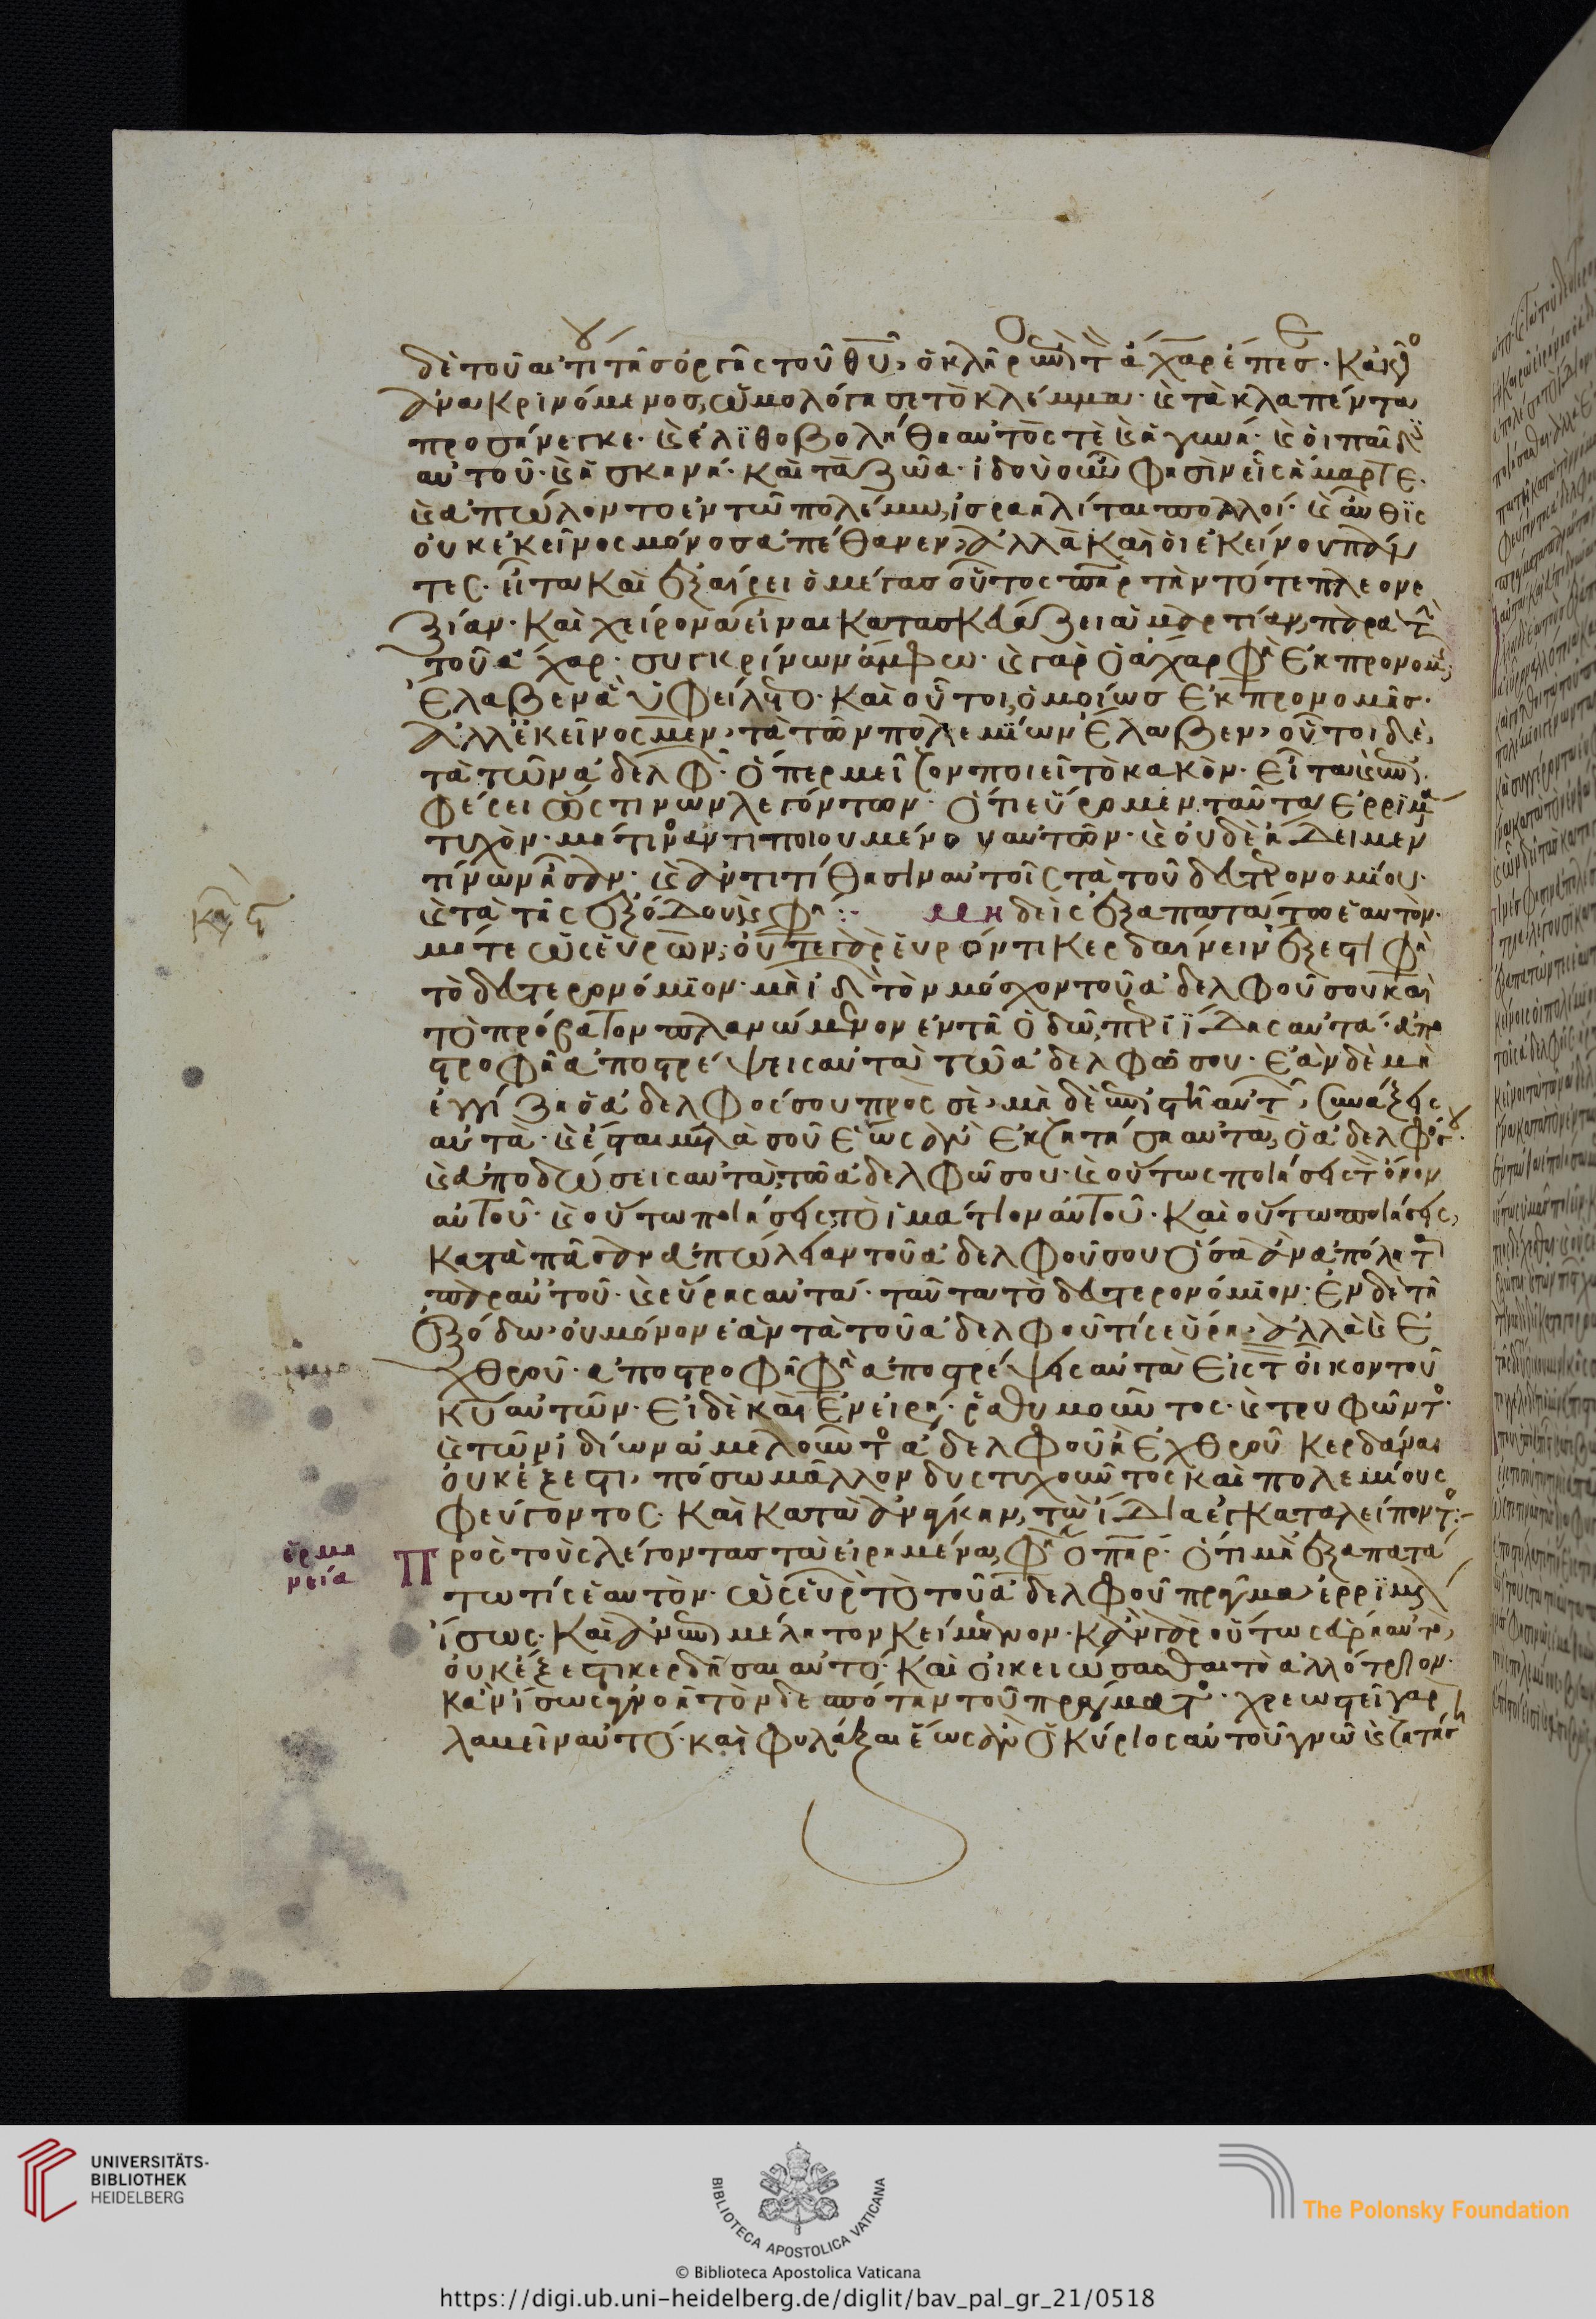 δὲ τοῦ αἰτί τῆς ὀργῆς τοῦ θυ, ὁ κλῆρ ἐπὶ τ ἄχαρ ἔπεσ.
ἀνακρινόμενος, ὡμολόγησε τὸ κλέμμα. κ τὰ κλαπέντα
προσήνεγκε. κ ἐλιθοβολήθη αὐτός τε κ ἡ γυνή. κ οἱ παῖδ
αὐτοῦ. κ ἡ σκηνή. καὶ τὰ ζῶα. ἰδοὺ οὖν φησὶν εἷς ἥμαρτε.
κ ἀπώλοντο ἐν τῶ πολέμω, ἰσραηλίται πολλοί. κ αὖθις
οὐκ ἐκεῖνος μόνος ἀπέθανεν, ἀλλὰ καὶ οἱ ἐκείνου πάν
τες. εἶτα καὶ ἐξαίρει ὁ μέγας οὗτος πηρ τὴν τότε πλεονε
ξίαν. καὶ χείρονα εἶναι κατασκευάζει ἁμαρτίαν, παρὰ τ
τοῦ ἄχαρ. συγκρίνων ἄμφω. κ γὰρ ὁ ἄχαρ φη ἐκ προνομ
ἔλαβεν ἃ ὑφείλετο. καὶ οὗτοι, ὁμοίως ἐκ προνομῆς.
ἀλλ' ἐκεῖνος μεν, τὰ τῶν πολεμίων ἔλαβεν, οὗτοι δὲ,
τὰ τῶν ἀδελφ. ὅπερ μεῖζον ποιεῖ τὸ κακόν. εἶτα
φέρει ὥς τινων λεγόντων. ὅτι εὕρομεν ταῦτα ἐρριμ
τυχὸν. μή τινος ἀντιποιουμένου αὐτῶν. κ οὐδὲ ἤδειμεν
τίνων ἦσαν. κ ἀντιτίθησιν αὐτοῖς τὰ τοῦ δευτερονομίου.
κ τὰ τῆς ἐξόδου, κ φη :- μηδεὶς ἐξαπατάτω ἑαυτόν.
μήτε ὡς εὑρών, οὔτε γὰρ εὑρόντι κερδαίνειν ἔξεστι φη
τὸ δευτερονόμιον. μὴ ἰδὼν τὸν μόσχον τοῦ ἀδελφοῦ σου καὶ
τὸ πρόβατον πλανώμενον ἐν τῆ ὁδῶ, περιΐδης αὐτά. ἀπο
στροφῆ ἀποστρέψεις αὐτὰ τῶ ἀδελφῶ σου. ἐὰν δὲ μὴ
ἐγγίζη ὁ ἀδελφός σου πρὸς σὲ, μὴ δὲ ἐπίστη αὐτ, συνάξεις
αὐτὰ. κ ἔσται μετὰ σοῦ ἕως ἂν ἐκζητήση αὐτὰ, ὁ ἀδελφός.
κ ἀποδώσεις αὐτὰ, τῶ ἀδελφῶ σου. κ οὕτως ποιήσεις τ ὄνον
αὐτοῦ. κ οὕτω ποιήσεις, τὸ ἱμάτιον αὐτοῦ. καὶ οὕτω ποιήσεις,
κατὰ πᾶσαν ἀπώλειαν τοῦ ἀδελφοῦ σου ὅσα ἂν ἀπόλητ
παρ αὐτοῦ. κ εὕρης αὐτά. ταῦτα τὸ δευτερονόμιον. ἐν δὲ τῆ
ἐξόδω, οὐ μόνον ἐὰν τὰ τοῦ ἀδελφοῦ τίς εὕρη, ἀλλὰ κ ἐ
χθροῦ. ἀποστροφῆ φη ἀποστρέψεις αὐτὰ εἰς τ οἶκον τοῦ
κυ αὐτῶν. εἰ δὲ καὶ ἐν εἰρή. ῥαθυμοῦντος. κ τρυφῶντ.
κ τῶν ἰδίων ἀμελοῦντ ἀδελφοῦ ἢ ἐχθροῦ κερδάναι
οὐκ ἔξεστι, πόσω μᾶλλον δυστυχοῦντος καὶ πολεμίους
φεύγοντος. καὶ κατὰ ἀνάγκην, τὰ ἴδια ἐγκαταλείποντ :-
ἑρμη
νεία
Πρὸς τοὺς λέγοντας τὰ εἰρημένα, φη ὁ πηρ. ὅτι μὴ ἐξαπατά
τω τίς ἑαυτόν. ὡς εὑρὼ τὸ τοῦ ἀδελφοῦ πρᾶγμα ἐρριμ
ἴσως. καὶ ἀνεπιμέλητον κείμενον. κἂν γὰρ οὕτως εὕρη αὐτὸ,
οὐκ ἔξεστι κερδῆσαι αὐτό. καὶ οἰκειώσασθαι τὸ ἀλλότριον.
κἂν ἴσως ἀγνοῆ τὸν δεσπότην τοῦ πράγματ. χρεωστεῖ γαρ
λαμεῖν αὐτὸ. καὶ φυλάξαι ἕως ἂν ὁ κύριος αὐτοῦ γνῶ κ ζητήσ
UNIVERSITÄTS-
BIBLIOTHEK
HEIDELBERG
BIBLIOTECA APOSTOLICA VATICANA
The Polonsky Foundation
© Biblioteca Apostolica Vaticana
https://digi.ub.uni-heidelberg.de/diglit/bav_pal_gr_21/0518